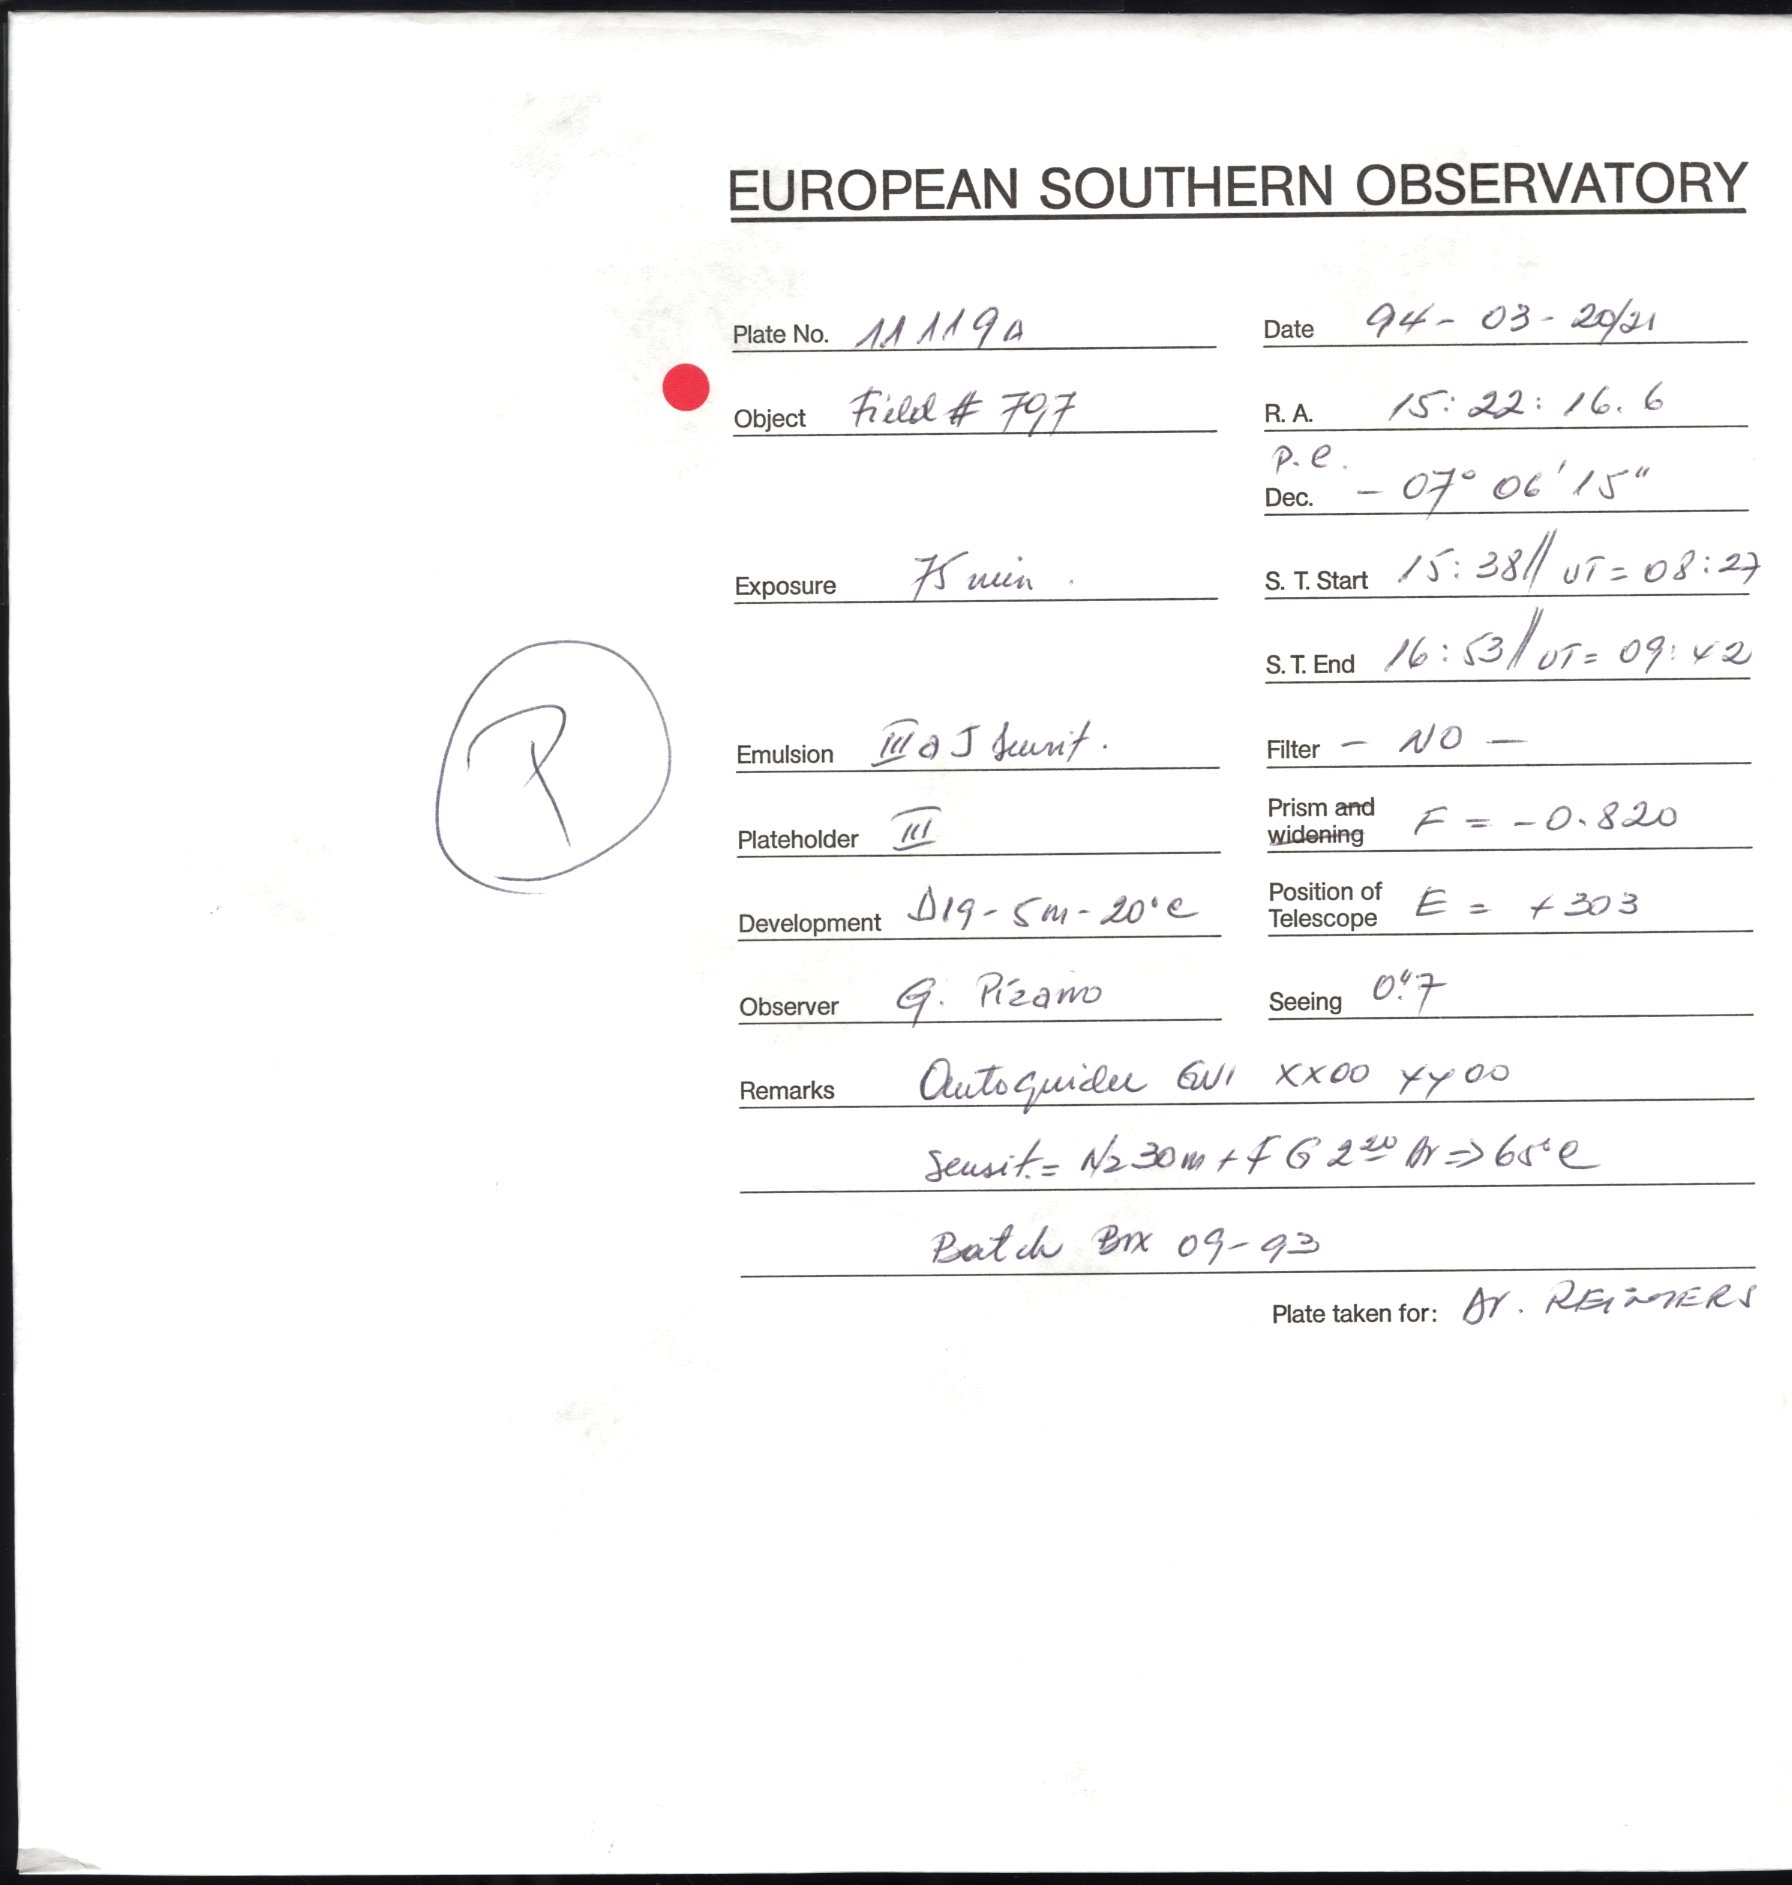 EUROPEAN SOUTHERN OBSERVATORY
Plate No. 11119A
Date 94 - 03 - 20/21
Object Field # 797
R. A. 15: 22: 16. 6
p. e.
Dec. - 07° 06' 15"
Exposure 75 min.
S. T. Start 15: 38// UT= 08:27
S. T. End 16: 53// UT= 09: 42
R
Emulsion III a J Sensit.
Filter - NO -
Plateholder III
Prism and widening F = -0.820
Development D19 - 5m - 20°C
Position of Telescope E = +303
Observer G. Pizarro
Seeing 0."7
Remarks Autoguider GW1 XX00 YY00
Sensit.= N2 30m + F G 2 20 Hr => 65°C
Batch Box 09-93
Plate taken for: Dr. REIMERS